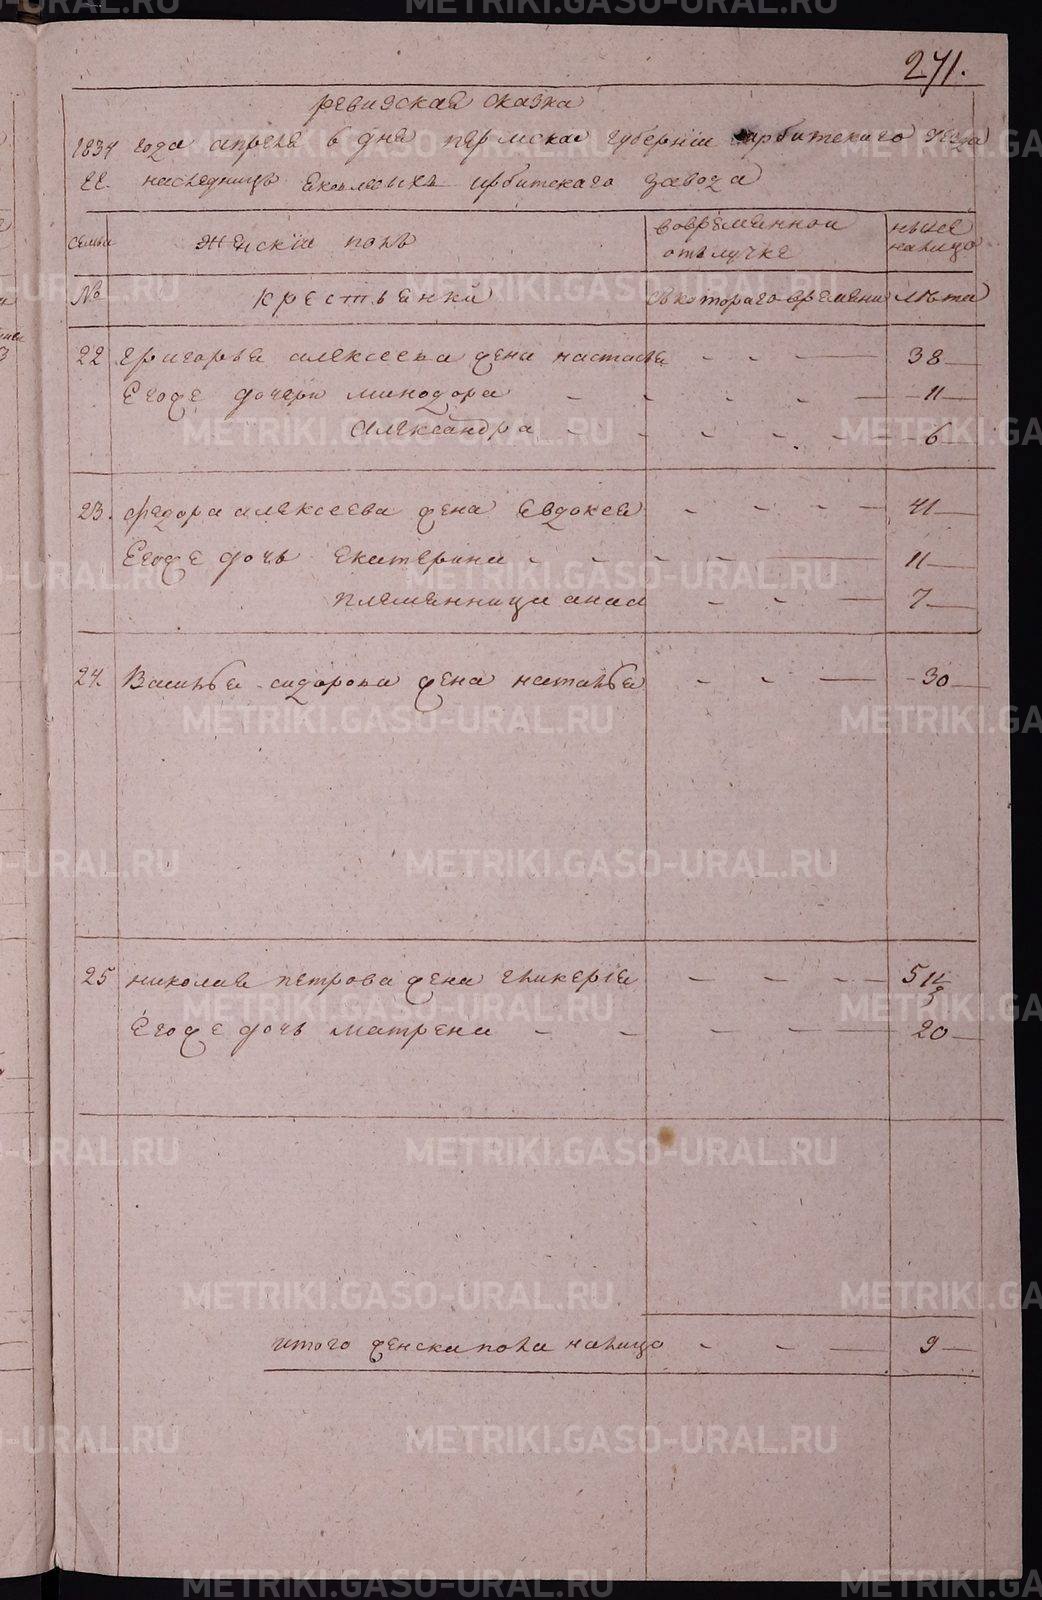 271.
ревизская сказка
1834 года апреля 6 дня пермской губернии ирбитского уезда
наследницъ Яковлевыхъ ирбитского завода
семьи
женский полъ
во временной отълучке
ныне налицо
№
крестьенки
съ которого времени
лета
22 григорья алексеева жена настасья - - - 38
Егоже дочери минодора - - - - 11
александра - - - - - 6
23. федора алексеева жена Евдокея - - - - 41
Егоже дочь Екатерина - - - - 11
племенница анна - - - 7
24. Василья сидорова жена наталья - - - 30
25 николая петрова жена гликерия - - - - 51 1/2
Егоже дочь матрена - - - - - 20
итого женска пола налицо - - - 9
METRIKI.GASO-URAL.RU